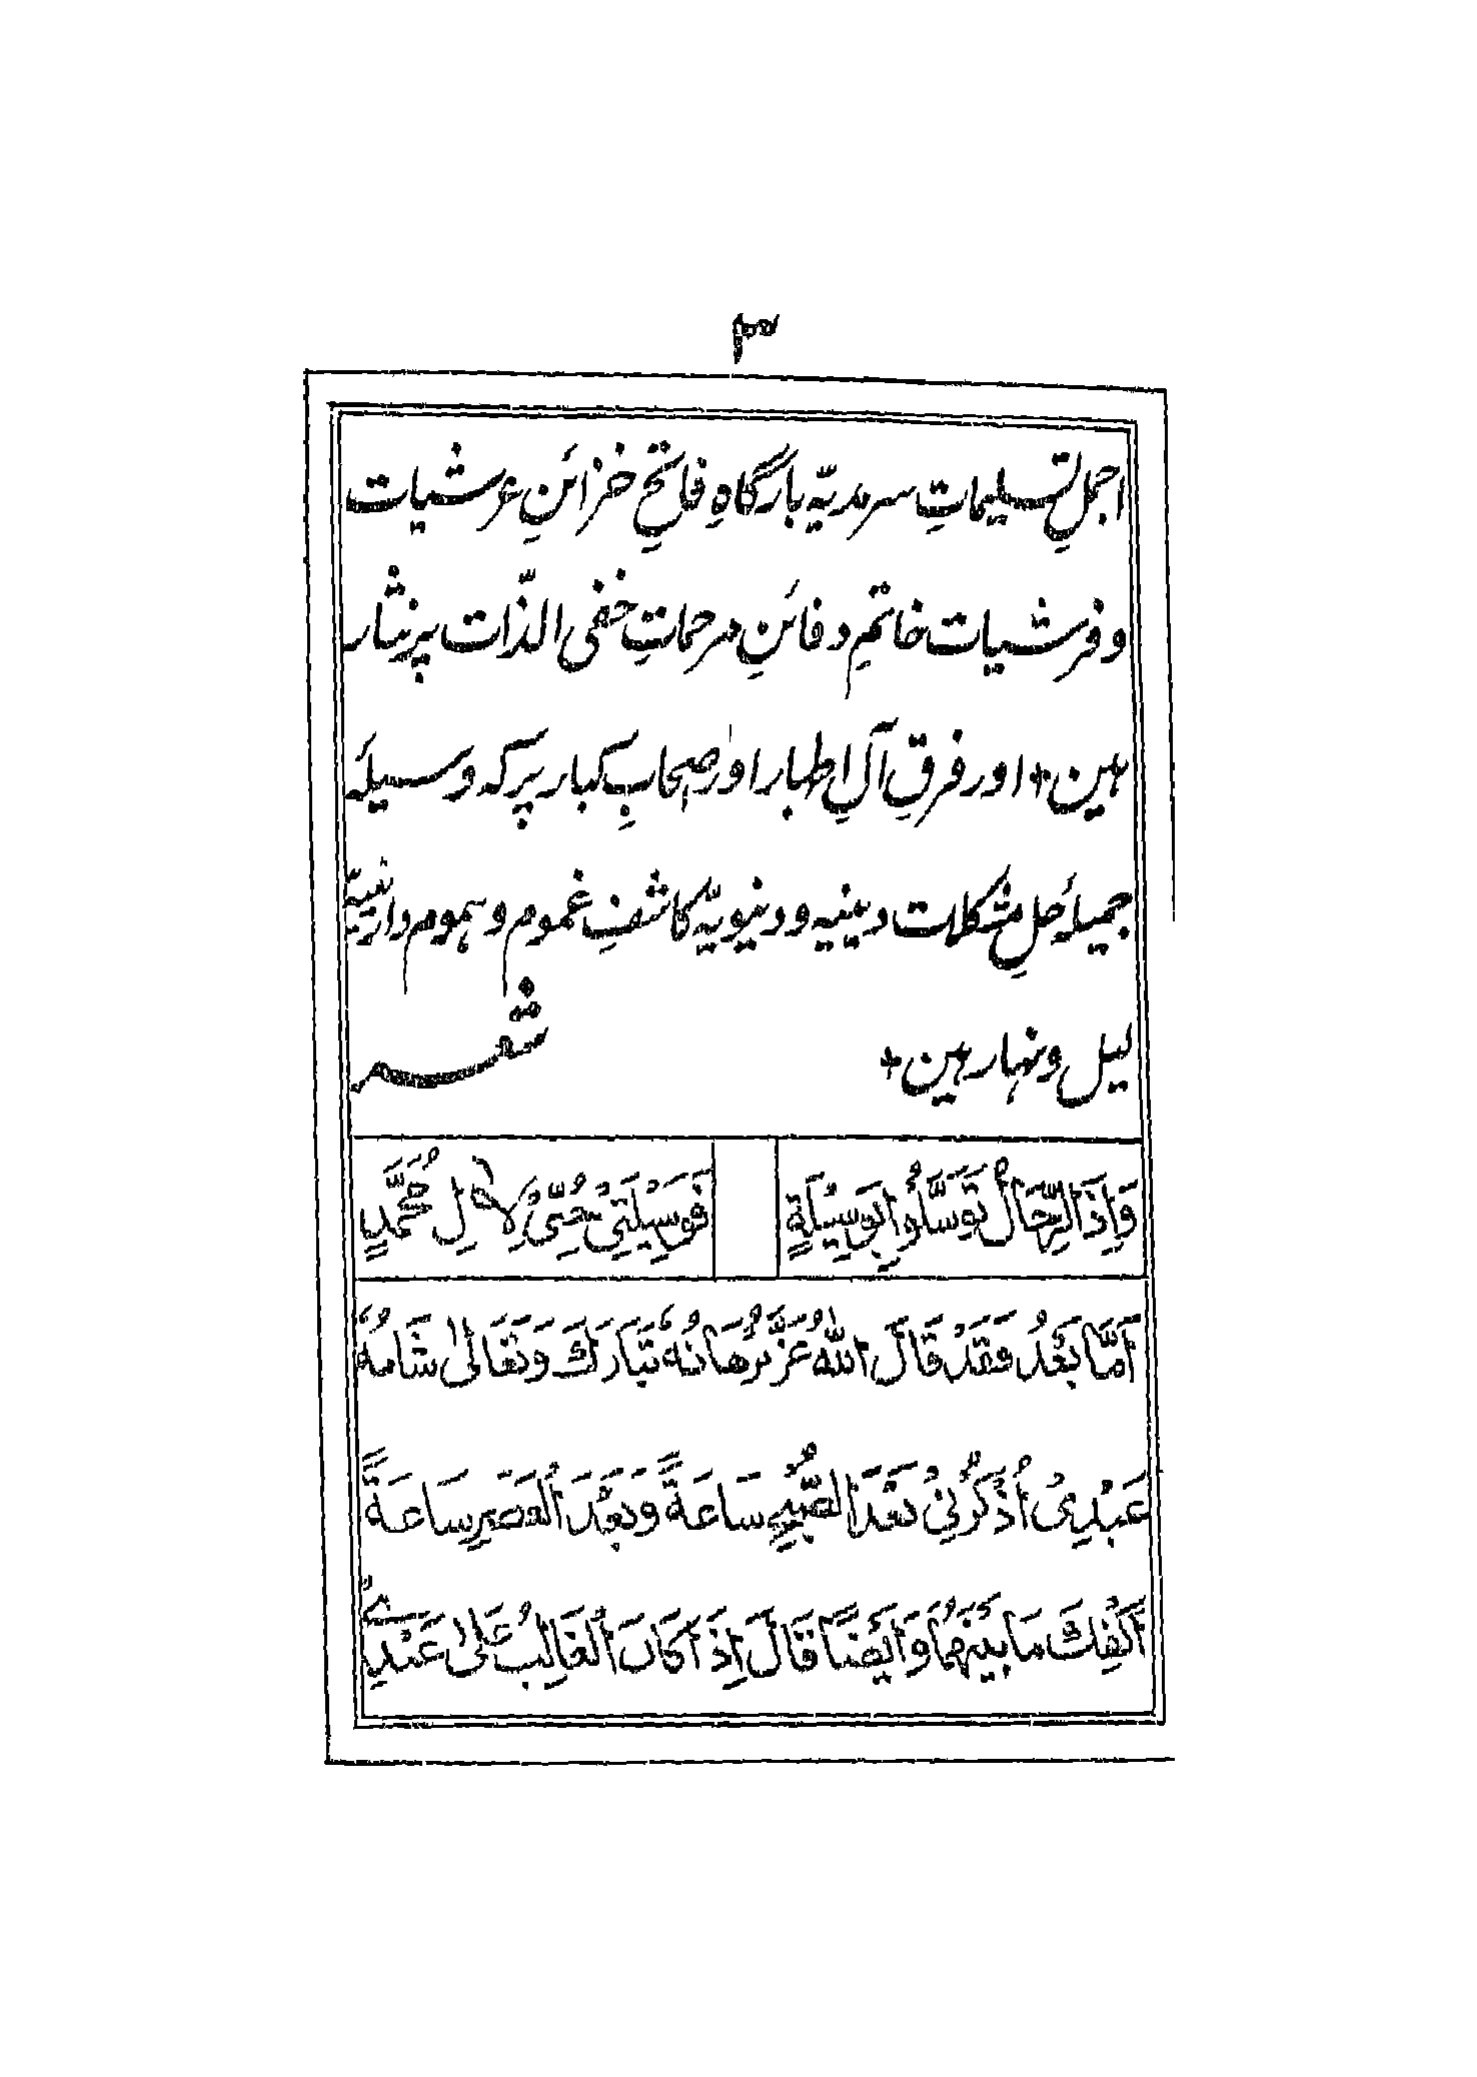 ۳
اجملِ تسلیماتِ سرمدیّہ بارگاہِ فاتحِ خزائنِ عرشیات
و فرشیات خاتمِ دفائنِ مرحماتِ خفی الذّات پر نثار
ہین + اور فرقِ آلِ اطہار اور صحابِ کبار پر کہ وسیلۂ
جمیلۂ حلِ مشکلات دینیہ و دنیویّہ کاشفِ غموم و ہموم دارینیّہ
لیل و نہار ہین + شعر
وَاِذَا الرِّجَالُ تَوَسَّلُوا بِوَسِیْلَةٍ فَوَسِیْلَتِیْ حُبِّیْ لِاٰلِ مُحَمَّدٍ
اَمَّا بَعْدُ فَقَدْ قَالَ اللّٰهُ عَزَّ بُرْهَانُهٗ تَبَارَكَ وَتَعَالٰی شَانُهٗ
عَبْدِیْ اُذْكُرْنِیْ بَعْدَ الصُّبْحِ سَاعَةً وَبَعْدَ الْعَصْرِ سَاعَةً
اَكْفِكَ مَا بَیْنَهُمَا وَاَیْضًا قَالَ اِذَا كَانَ الْغَالِبُ عَلٰی عَبْدِیْ